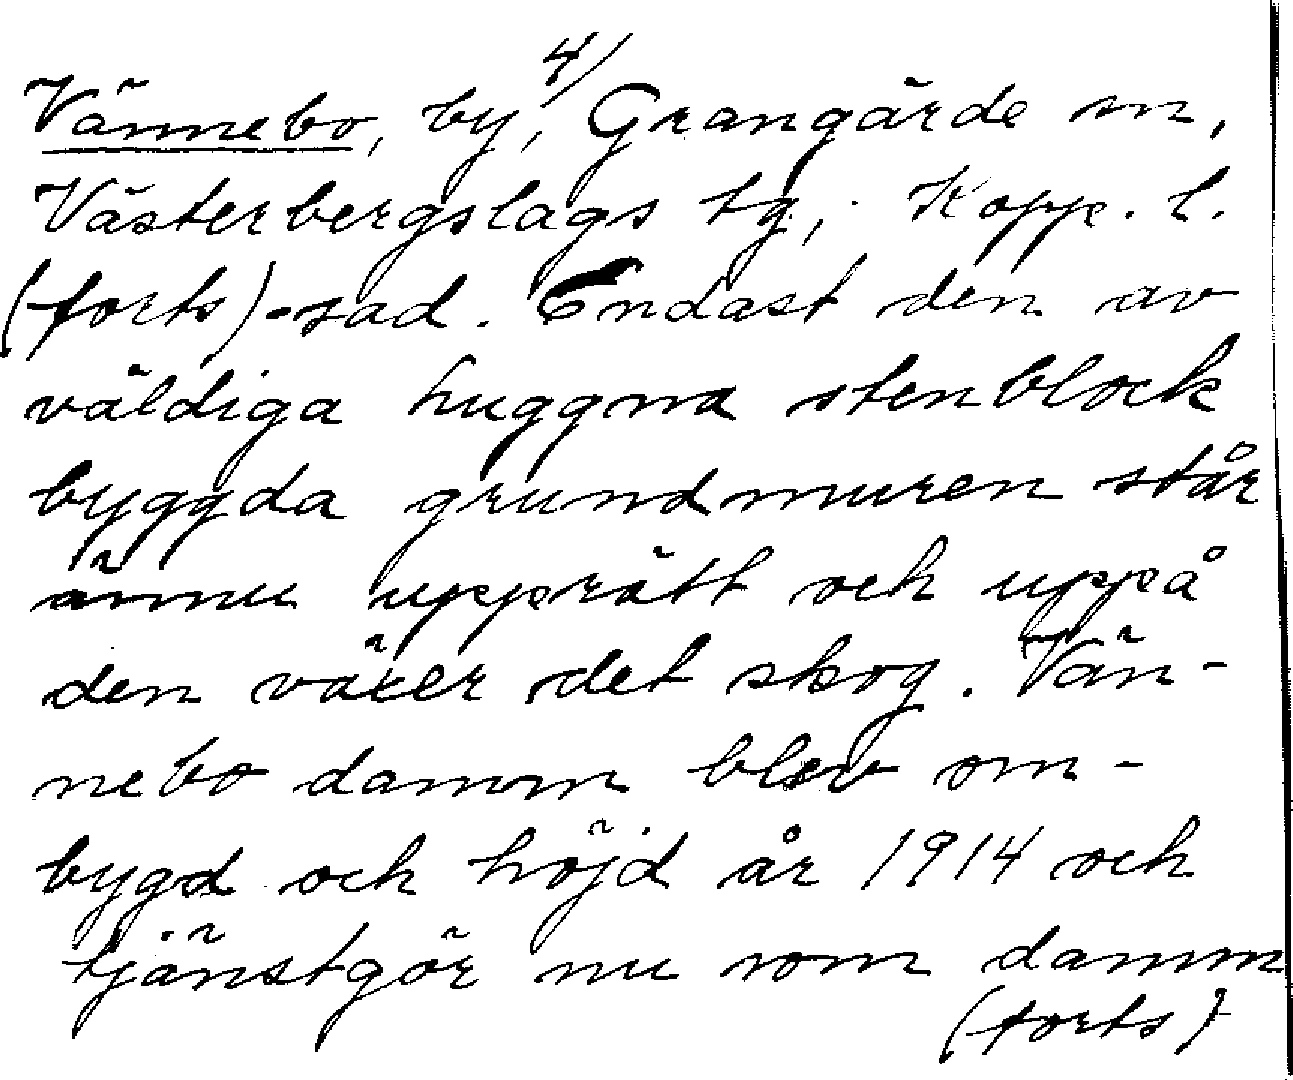 4/
Vännebo, by, Grangärde sn,
Västerbergslags tg, Kopp. l.
(forts)-sad. Endast den av
väldiga huggna stenblock
byggda grundmuren står
ännu upprätt och uppå
den växer det skog. Vän-
nebo damm blev om-
bygd och höjd år 1914 och
tjänstgör nu som damm
(forts)